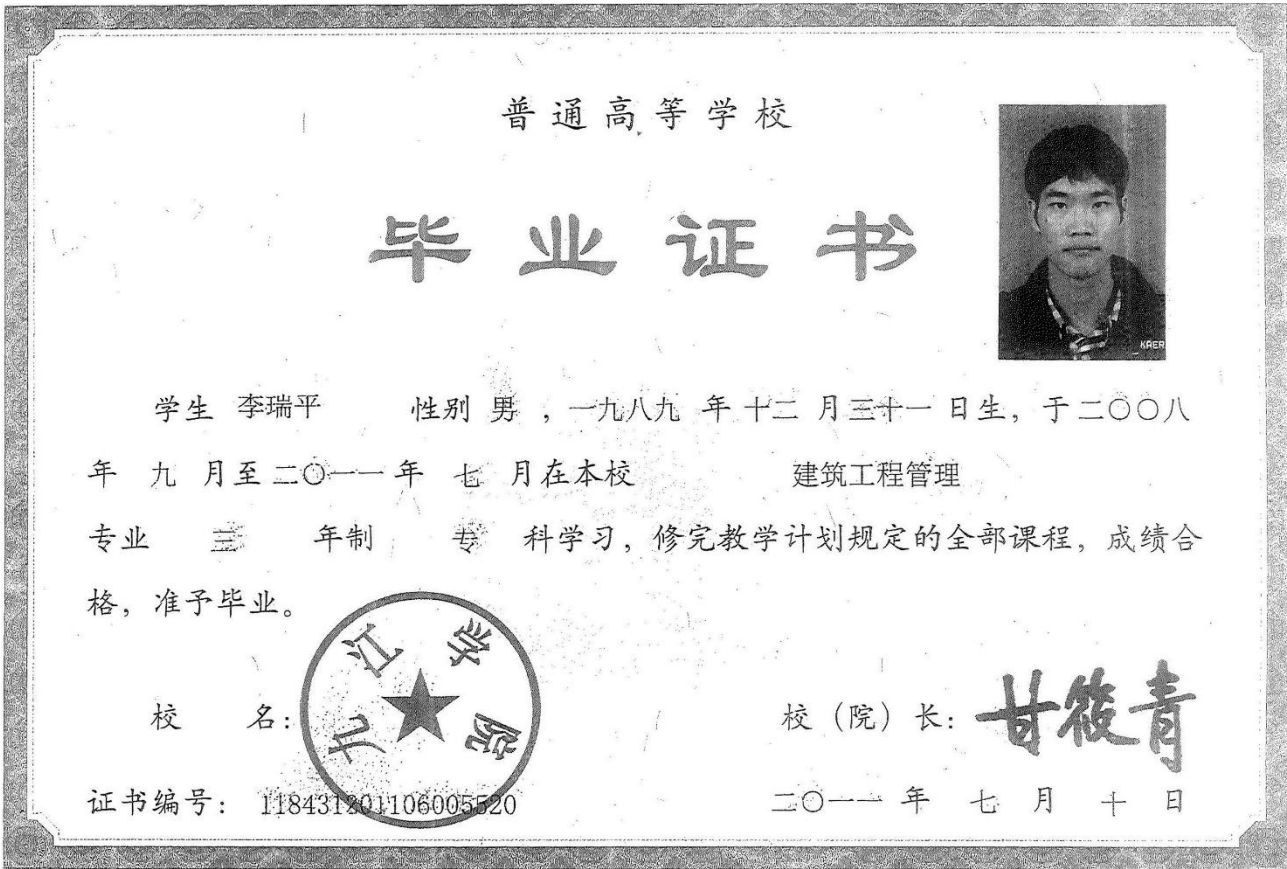 普通高等学校
毕业证书
KAER
学生 李瑞平 性别 男 ，一九八九 年 十二 月 三十一 日生，于 二〇〇八
年 九 月至 二〇一一 年 七 月在本校 建筑工程管理
专业 三 年制 专 科学习，修完教学计划规定的全部课程，成绩合
格，准予毕业。
九江学院
校 名： 校（院）长：甘筱青
证书编号：118431201106005520 二〇一一 年 七 月 十 日